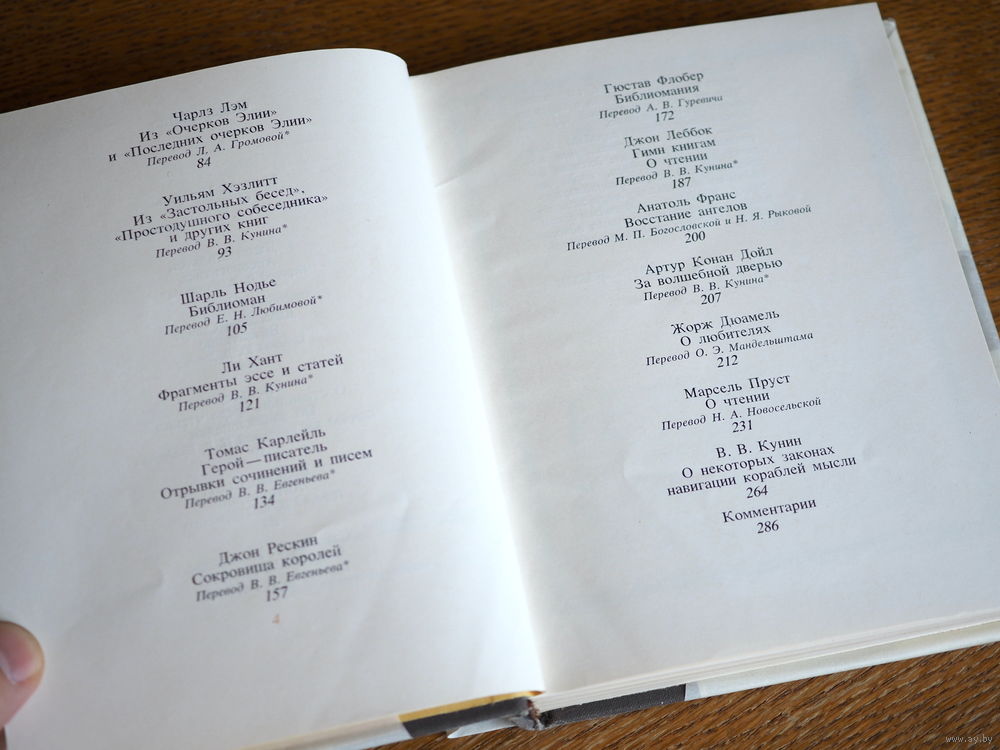 Чарлз Лэм
Из «Очерков Элии»
и «Последних очерков Элии»
Перевод Л. А. Громовой*
84
Уильям Хэзлитт
Из «Застольных бесед»,
«Простодушного собеседника»
и других книг
Перевод В. В. Кунина*
93
Шарль Нодье
Библиоман
Перевод Е. Н. Любимовой*
105
Ли Хант
Фрагменты эссе и статей
Перевод В. В. Кунина*
121
Томас Карлейль
Герой — писатель
Отрывки сочинений и писем
Перевод В. В. Евгеньева*
134
Джон Рескин
Сокровища королей
Перевод В. В. Евгеньева*
157
4
Гюстав Флобер
Библиомания
Перевод А. В. Гуревича
172
Джон Леббок
Гимн книгам
О чтении
Перевод В. В. Кунина*
187
Анатоль Франс
Восстание ангелов
Перевод М. П. Богословской и Н. Я. Рыковой
200
Артур Конан Дойл
За волшебной дверью
Перевод В. В. Кунина*
207
Жорж Дюамель
О любителях
Перевод О. Э. Мандельштама
212
Марсель Пруст
О чтении
Перевод Н. А. Новосельской
231
В. В. Кунин
О некоторых законах
навигации кораблей мысли
264
Комментарии
286
www.ay.by